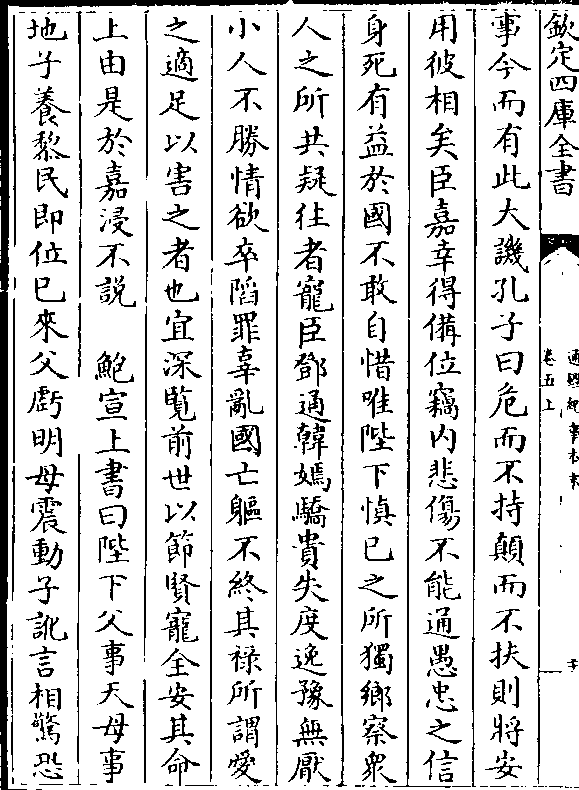 欽定四庫全書
卷五上
事今而有此大譏孔子曰危而不持顛而不扶則將安
用彼相矣臣嘉幸得備位竊内悲傷不能通愚忠之信
身死有益於國不敢自惜唯陛下慎已之所獨鄉察衆
人之所共疑往者寵臣鄧通韓嫣驕貴失度逸豫無厭
小人不勝情欲卒䧟罪辜亂國亡軀不終其祿所謂愛
之適足以害之者也宜深覽前世以節賢寵全安其命
上由是於嘉浸不説　鮑宣上書曰陛下父事天母事
地子養黎民即位已來父虧明母震動子訛言相驚恐